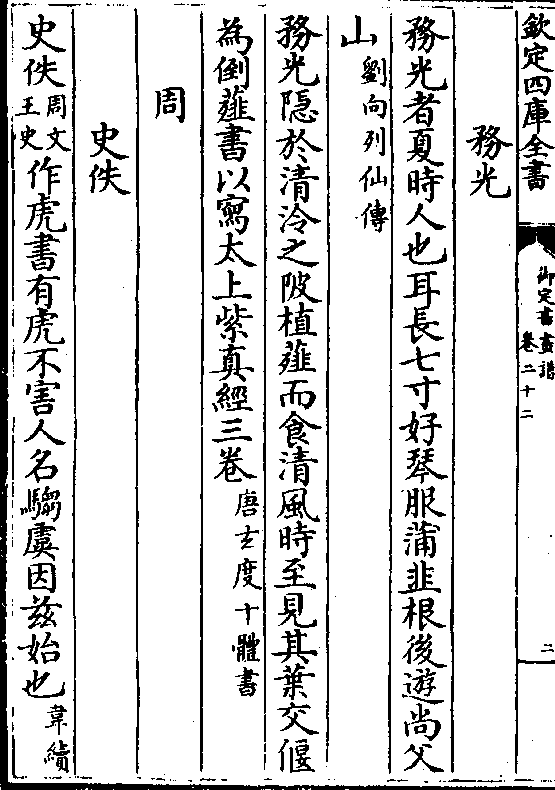 欽定四庫全書
御定書畫譜
卷二十二
二
務光
務光者夏時人也耳長七寸好琴服蒲韭根後遊尚父
山劉向列仙傳
務光隱於清泠之陂植薤而食清風時至見其葉交偃
為倒薤書以寫太上紫真經三卷唐玄度十體書
周
史佚
史佚周文王史作虎書有虎不害人名騶虞因兹始也韋續